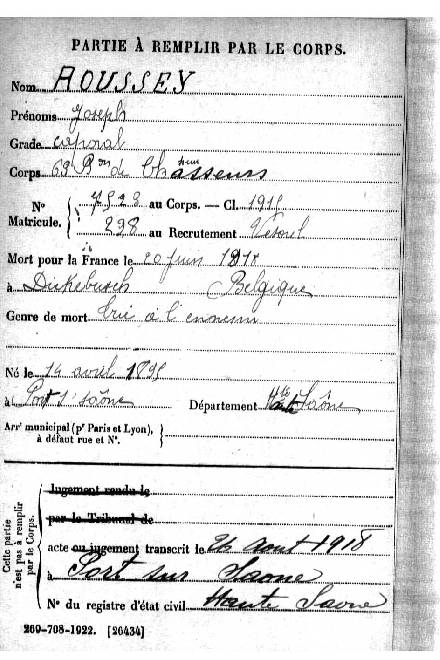 PARTIE À REMPLIR PAR LE CORPS.
Nom ROUSSEY
Prénoms Joseph
Grade caporal
Corps 69 Bon de Chasseurs
No Matricule. 7528 au Corps. — Cl. 1915
298 au Recrutement Vesoul
Mort pour la France le 20 juin 1918
à Dickebusch Belgique
Genre de mort tué à l'ennemi
Né le 14 avril 1895
à Port s/ Saône Département Hte Saône
Arrt municipal (pr Paris et Lyon), à défaut rue et No.
Cette partie n'est pas à remplir par le Corps.
Jugement rendu le
par le Tribunal de
acte ou jugement transcrit le 26 août 1918
à Port sur Saone
No du registre d'état civil Haute Saone
269-708-1922. [26434]